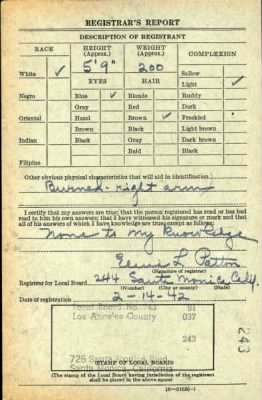 REGISTRAR'S REPORT
DESCRIPTION OF REGISTRANT
RACE HEIGHT (Approx.) WEIGHT (Approx.) COMPLEXION
5' 9" 200 Sallow
White ✓ EYES HAIR Light ✓
Negro Blue ✓ Blonde Ruddy
Gray Red Dark
Oriental Hazel Brown ✓ Freckled
Brown Black Light brown
Indian Black Gray Dark brown
Bald Black
Filipino
Other obvious physical characteristics that will aid in identification
Burned - right arm
I certify that my answers are true; that the person registered has read or has had
read to him his own answers; that I have witnessed his signature or mark and that
all of his answers of which I have knowledge are true, except as follows:
None to my knowledge
L Patton
(Signature of registrar)
Registrar for Local Board 244 Santa Monica Calif.
(Number) (City or county) (State)
Date of registration 2-14-42
Local Board No. 243 81
Los Angeles County 037
243
243
726 Santa Monica Blvd.
Santa Monica, California
(STAMP OF LOCAL BOARD)
(The stamp of the Local Board having jurisdiction of the registrant
shall be placed in the above space)
16—21630-1